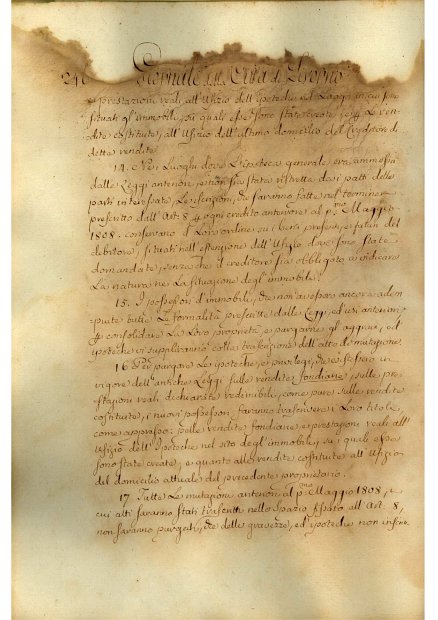 24 Giornale della Città di Livorno
e prestazioni reali, all'Ufizio dell'ipoteche del Luogo in cui son
situati gl'immobili, su i quali esse sono state create, e per le ren-
dite costituite, all'Ufizio dell'ultimo domicilio del Creditore di
dette rendite.
14. Nei Luoghi dove l'ipoteca generale era ammessa
dalle Leggi anteriori, e non sia stata ristretta dai patti delle
parti interessate, le iscrizioni, che saranno fatte nel termine
prescritto dall'Art. 8. p. ogni credito anteriore al p.mo Maggio
1808. conservano il Loro ordine su i beni presenti, e futuri del
debitore, situati nell'estensione dell'Ufizio dove sono state
domandate, senza che il creditore sia obbligato a indicare
la natura nè la situazione degl'immobili.
15. I possessori d'immobili, che non avessero ancora adem-
piute tutte le formalità prescritte dalle Leggi, ed usi anteriori
p. consolidare la Loro proprietà, e purgarne gli aggravi, ed
ipoteche vi suppliranno colla trascrizione dell'atto di mutazione.
16. Per purgare le ipoteche, e privilegi, che esistessero in
vigore dell'antiche Leggi sulle rendite fondiarie, sulle pre-
stazioni reali dichiarate redimibili, come pure sulle rendite
costituite, i nuovi possessori, faranno trascrivere i Loro titoli,
come appresso: p. le rendite fondiarie, e prestazioni reali all'
Ufizio dell'Ipoteche nel sito degl'immobili, su i quali esse
sono state create, e quanto alle rendite costituite all'Ufizio
del domicilio attuale del precedente proprietario.
17. Tutte le mutazioni anteriori al p.mo Maggio 1808, i
cui atti saranno stati trascritti nello spazio fissato all'Art. 8,
non saranno purgati, che delle gravezze, ed ipoteche non inscrit